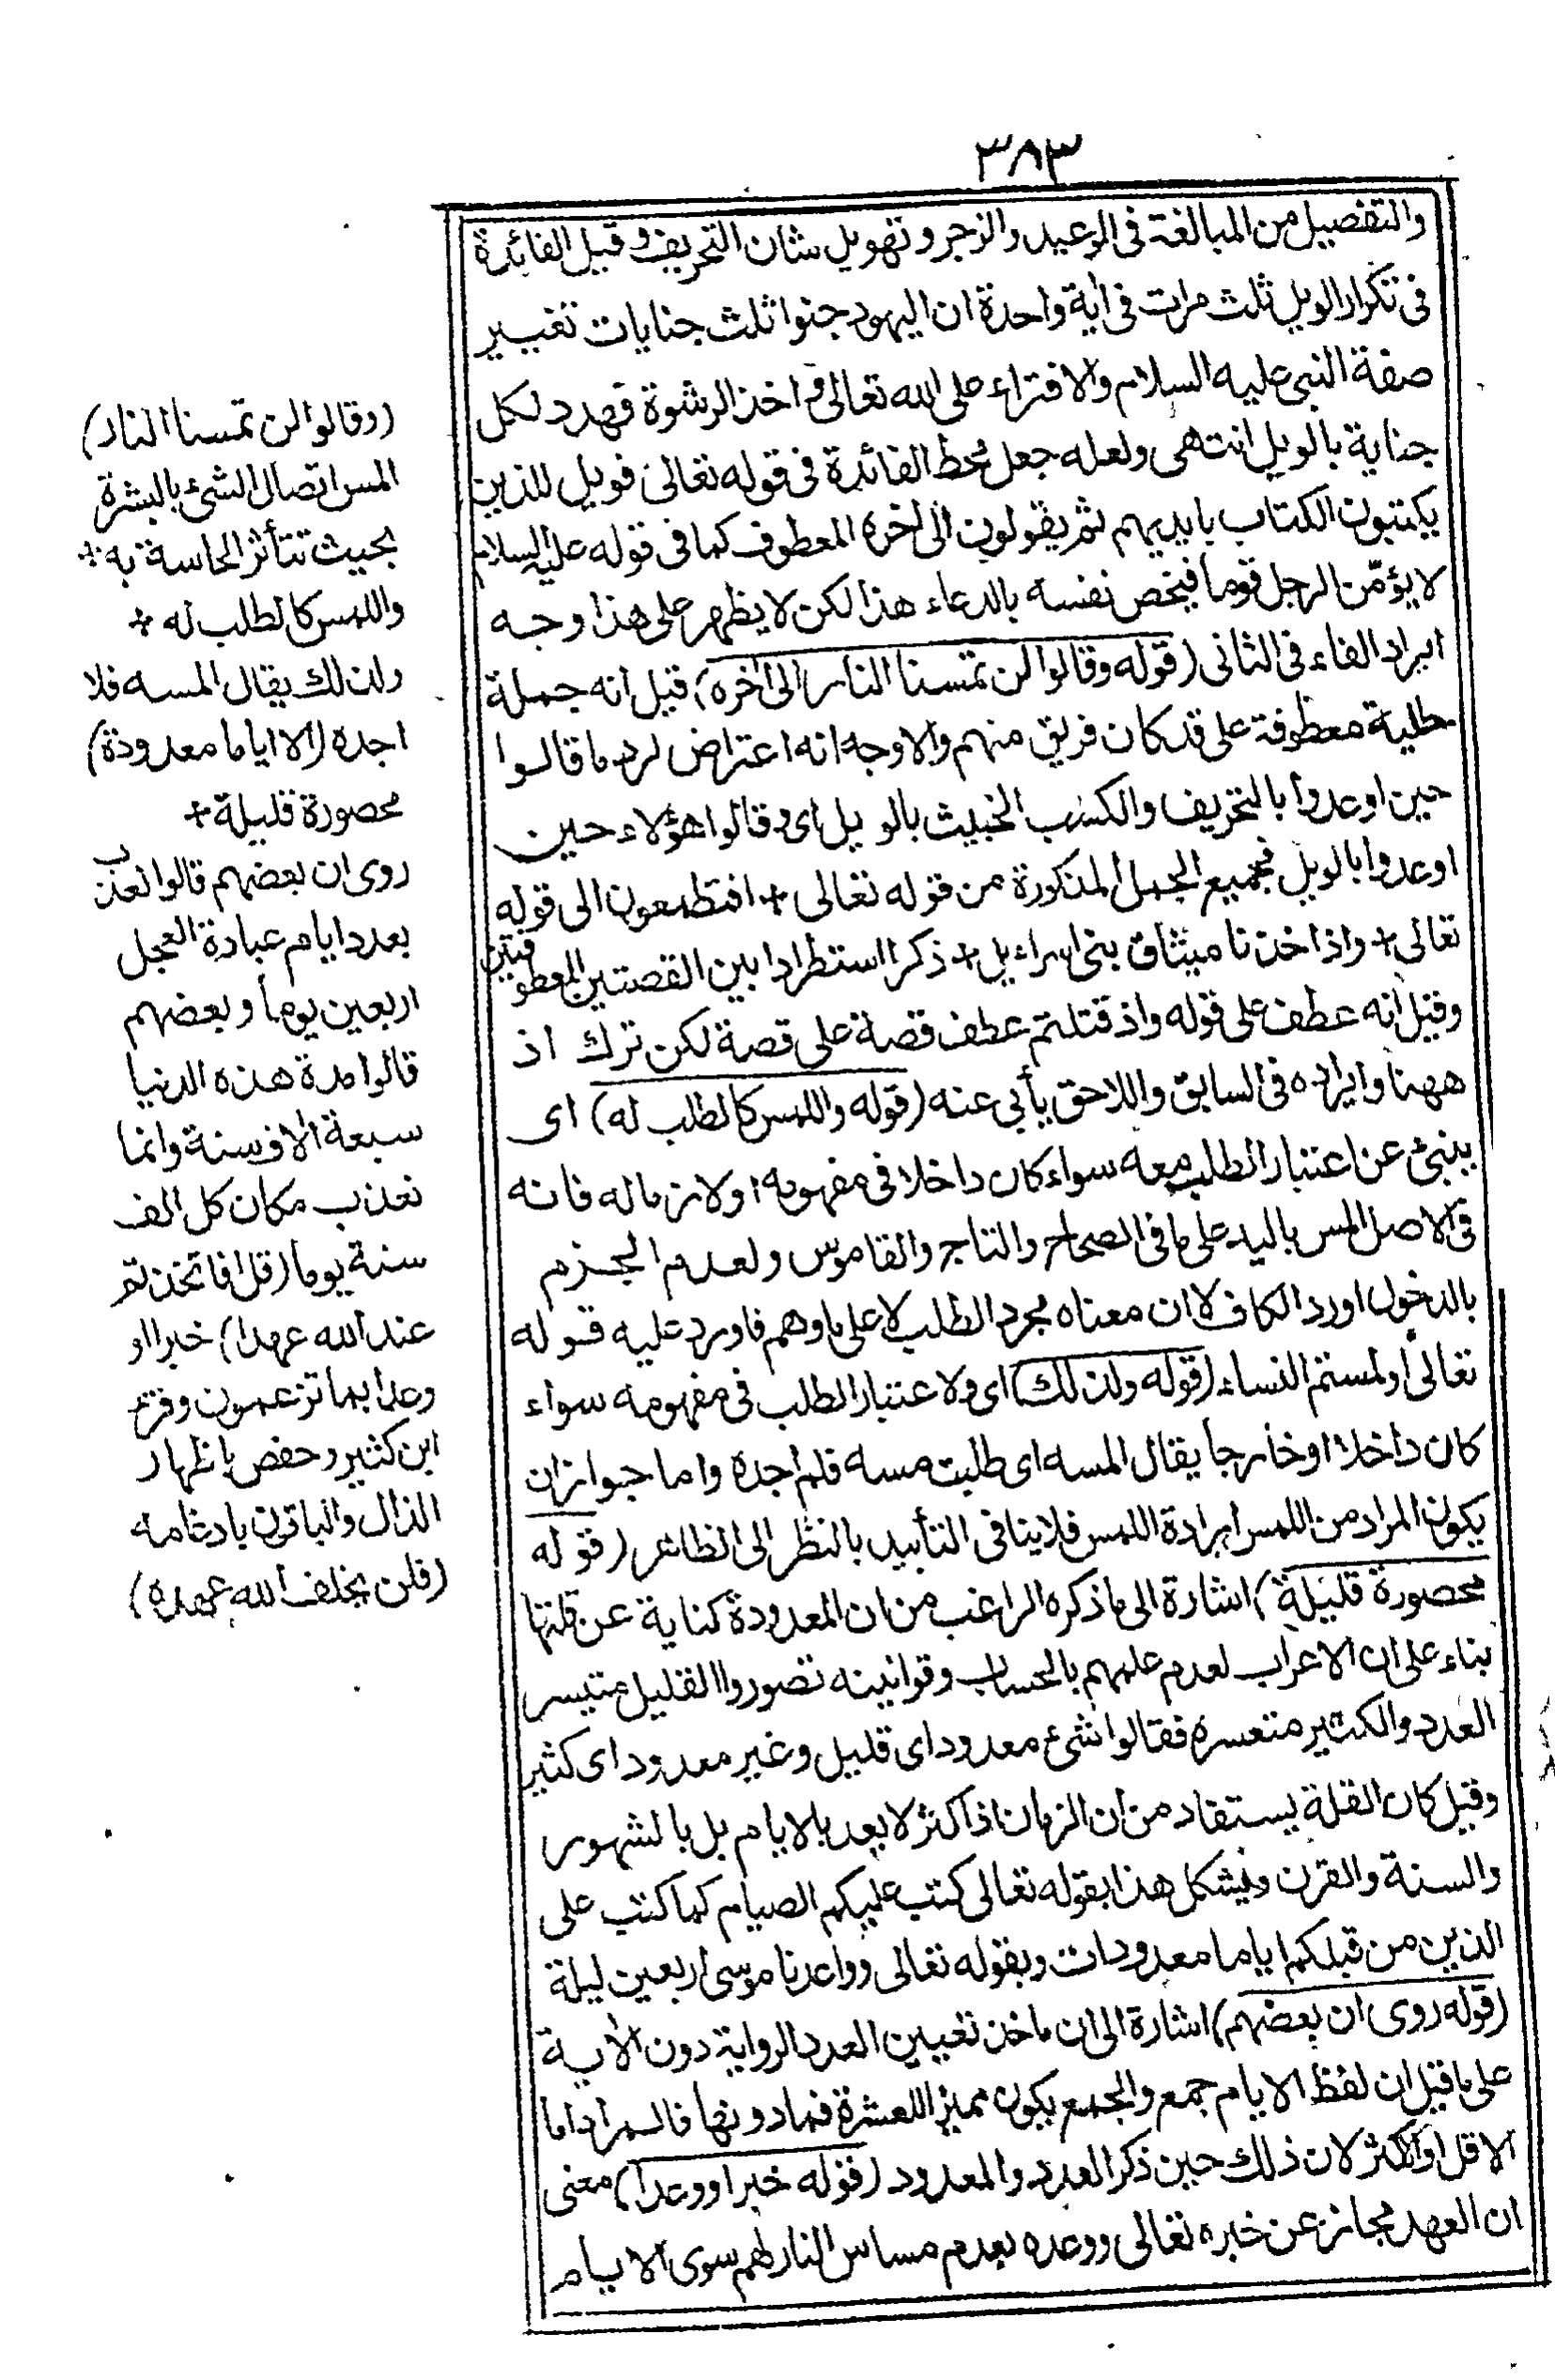 ٣٨٣
والتفصيل من المبالغة فى الوعيد والزجر وتهويل شان التحريف وقيل الفائدة
فى تكرار الويل ثلث مرات فى اية واحدة ان اليهود جنوا ثلث جنايات تغيير
صفة النبى عليه السلام والافتراء على الله تعالى واخذ الرشوة فهدد لكل
جناية بالويل انتهى ولعله جعل محط الفائدة فى قوله تعالى فويل للذين
يكتبون الكتاب بايديهم ثم يقولون الى اخره المعطوف كما فى قوله عليه السلام
لا يؤمّن الرجل قوما فيخص نفسه بالدعاء هذا لكن لا يظهر على هذا وجه
ايراد الفاء فى الثانى (قوله وقالوا لن تمسنا النار الى اخره) قيل انه جملة
حالية معطوفة على قد كان فريق منهم والاوجه انه اعتراض لرد ما قالوا
حين اوعدوا بالتحريف والكسب الخبيث بالويل اى وقالوا هؤلاء حين
اوعدوا بالويل فجميع الجمل المذكورة من قوله تعالى + افتطمعون الى قوله
تعالى + واذ اخذنا ميثاق بنى اسراءيل + ذكر استطرادا بين القصتين المعطوفتين
وقيل انه عطف على قوله واذ قتلتم عطف قصة على قصة لكن ترك اذ
ههنا وايراده فى السابق واللاحق يأبى عنه (قوله واللمس كالطلب له) اى
ينبئ عن اعتبار الطلب معه سواء كان داخلا فى مفهومه او لازما له فانه
فى الاصل المس باليد على ما فى الصحاح والتاج والقاموس ولعدم الجزم
بالدخول اورد الكاف لا ان معناه مجرد الطلب لا على ما وهم فاورد عليه قوله
تعالى اولمستم النساء (قوله ولذلك) اى ولاعتبار الطلب فى مفهومه سواء
كان داخلا او خارجا يقال المسه اى طلبت مسه فلم اجده واما جواز ان
يكون المراد من اللمس ارادة اللمس فلا ينافى التأييد بالنظر الى الظاهر (قوله
محصورة قليلة) اشارة الى ما ذكره الراغب من ان المعدودة كناية عن قلتها
بناء على ان الاعراب لعدم علمهم بالحساب وقوانينه تصوروا القليل متيسر
العدد والكثير متعسره فقالوا شئ معدود اى قليل وغير معدود اى كثير
وقيل كان القلة يستفاد من ان الزمان اذا كثر لا يعد بالايام بل بالشهور
والسنة والقرن ويشكل هذا بقوله تعالى كتب عليكم الصيام كما كتب على
الذين من قبلكم اياما معدودات وبقوله تعالى وواعدنا موسى اربعين ليلة
(قوله روى ان بعضهم) اشارة الى ان ماخذ تعيين العدد الرواية دون الاية
على ما قيل ان لفظ الايام جمع والجمع يكون مميزا للعشرة فما دونها فالمراد اما
الاقل او الاكثر لان ذلك حين ذكر العدد والمعدود (قوله خبرا ووعدا) معنى
ان العهد مجاز عن خبره تعالى ووعده بعدم مساس النار لهم سوى الايام
(وقالوا لن تمسنا النار)
المس اتصال الشئ بالبشرة
بحيث تتأثر الحاسة به +
واللمس كالطلب له +
ولذلك يقال المسه فلا
اجده (الا اياما معدودة)
محصورة قليلة +
روى ان بعضهم قالوا نعذب
بعدد ايام عبادة العجل
اربعين يوما وبعضهم
قالوا مدة هذه الدنيا
سبعة الاف سنة وانما
نعذب مكان كل الف
سنة يوما (قل اتخذتم
عند الله عهدا) خبرا او
وعدا بما تزعمون وقرء
ابن كثير وحفص باظهار
الذال والباقون بادغامه
(فلن يخلف الله عهده)